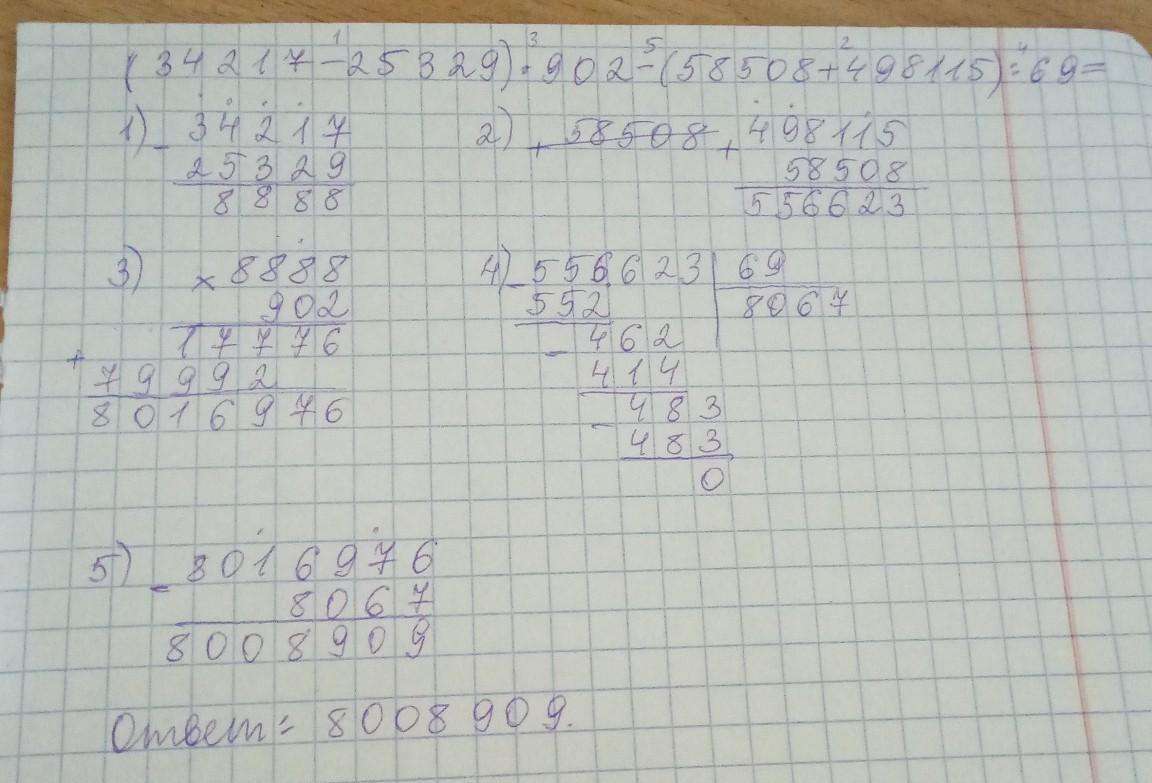 (34217-25329)·902-(58508+498115):69=
1) - 34217
25329
8888
2) + 58508 + 498115
58508
556623
3) × 8888
902
17776
+ 79992
8016976
4) - 556623 | 69
552 8067
- 462
414
- 483
483
0
5) - 8016976
8067
8008909
Ответ: 8008909.